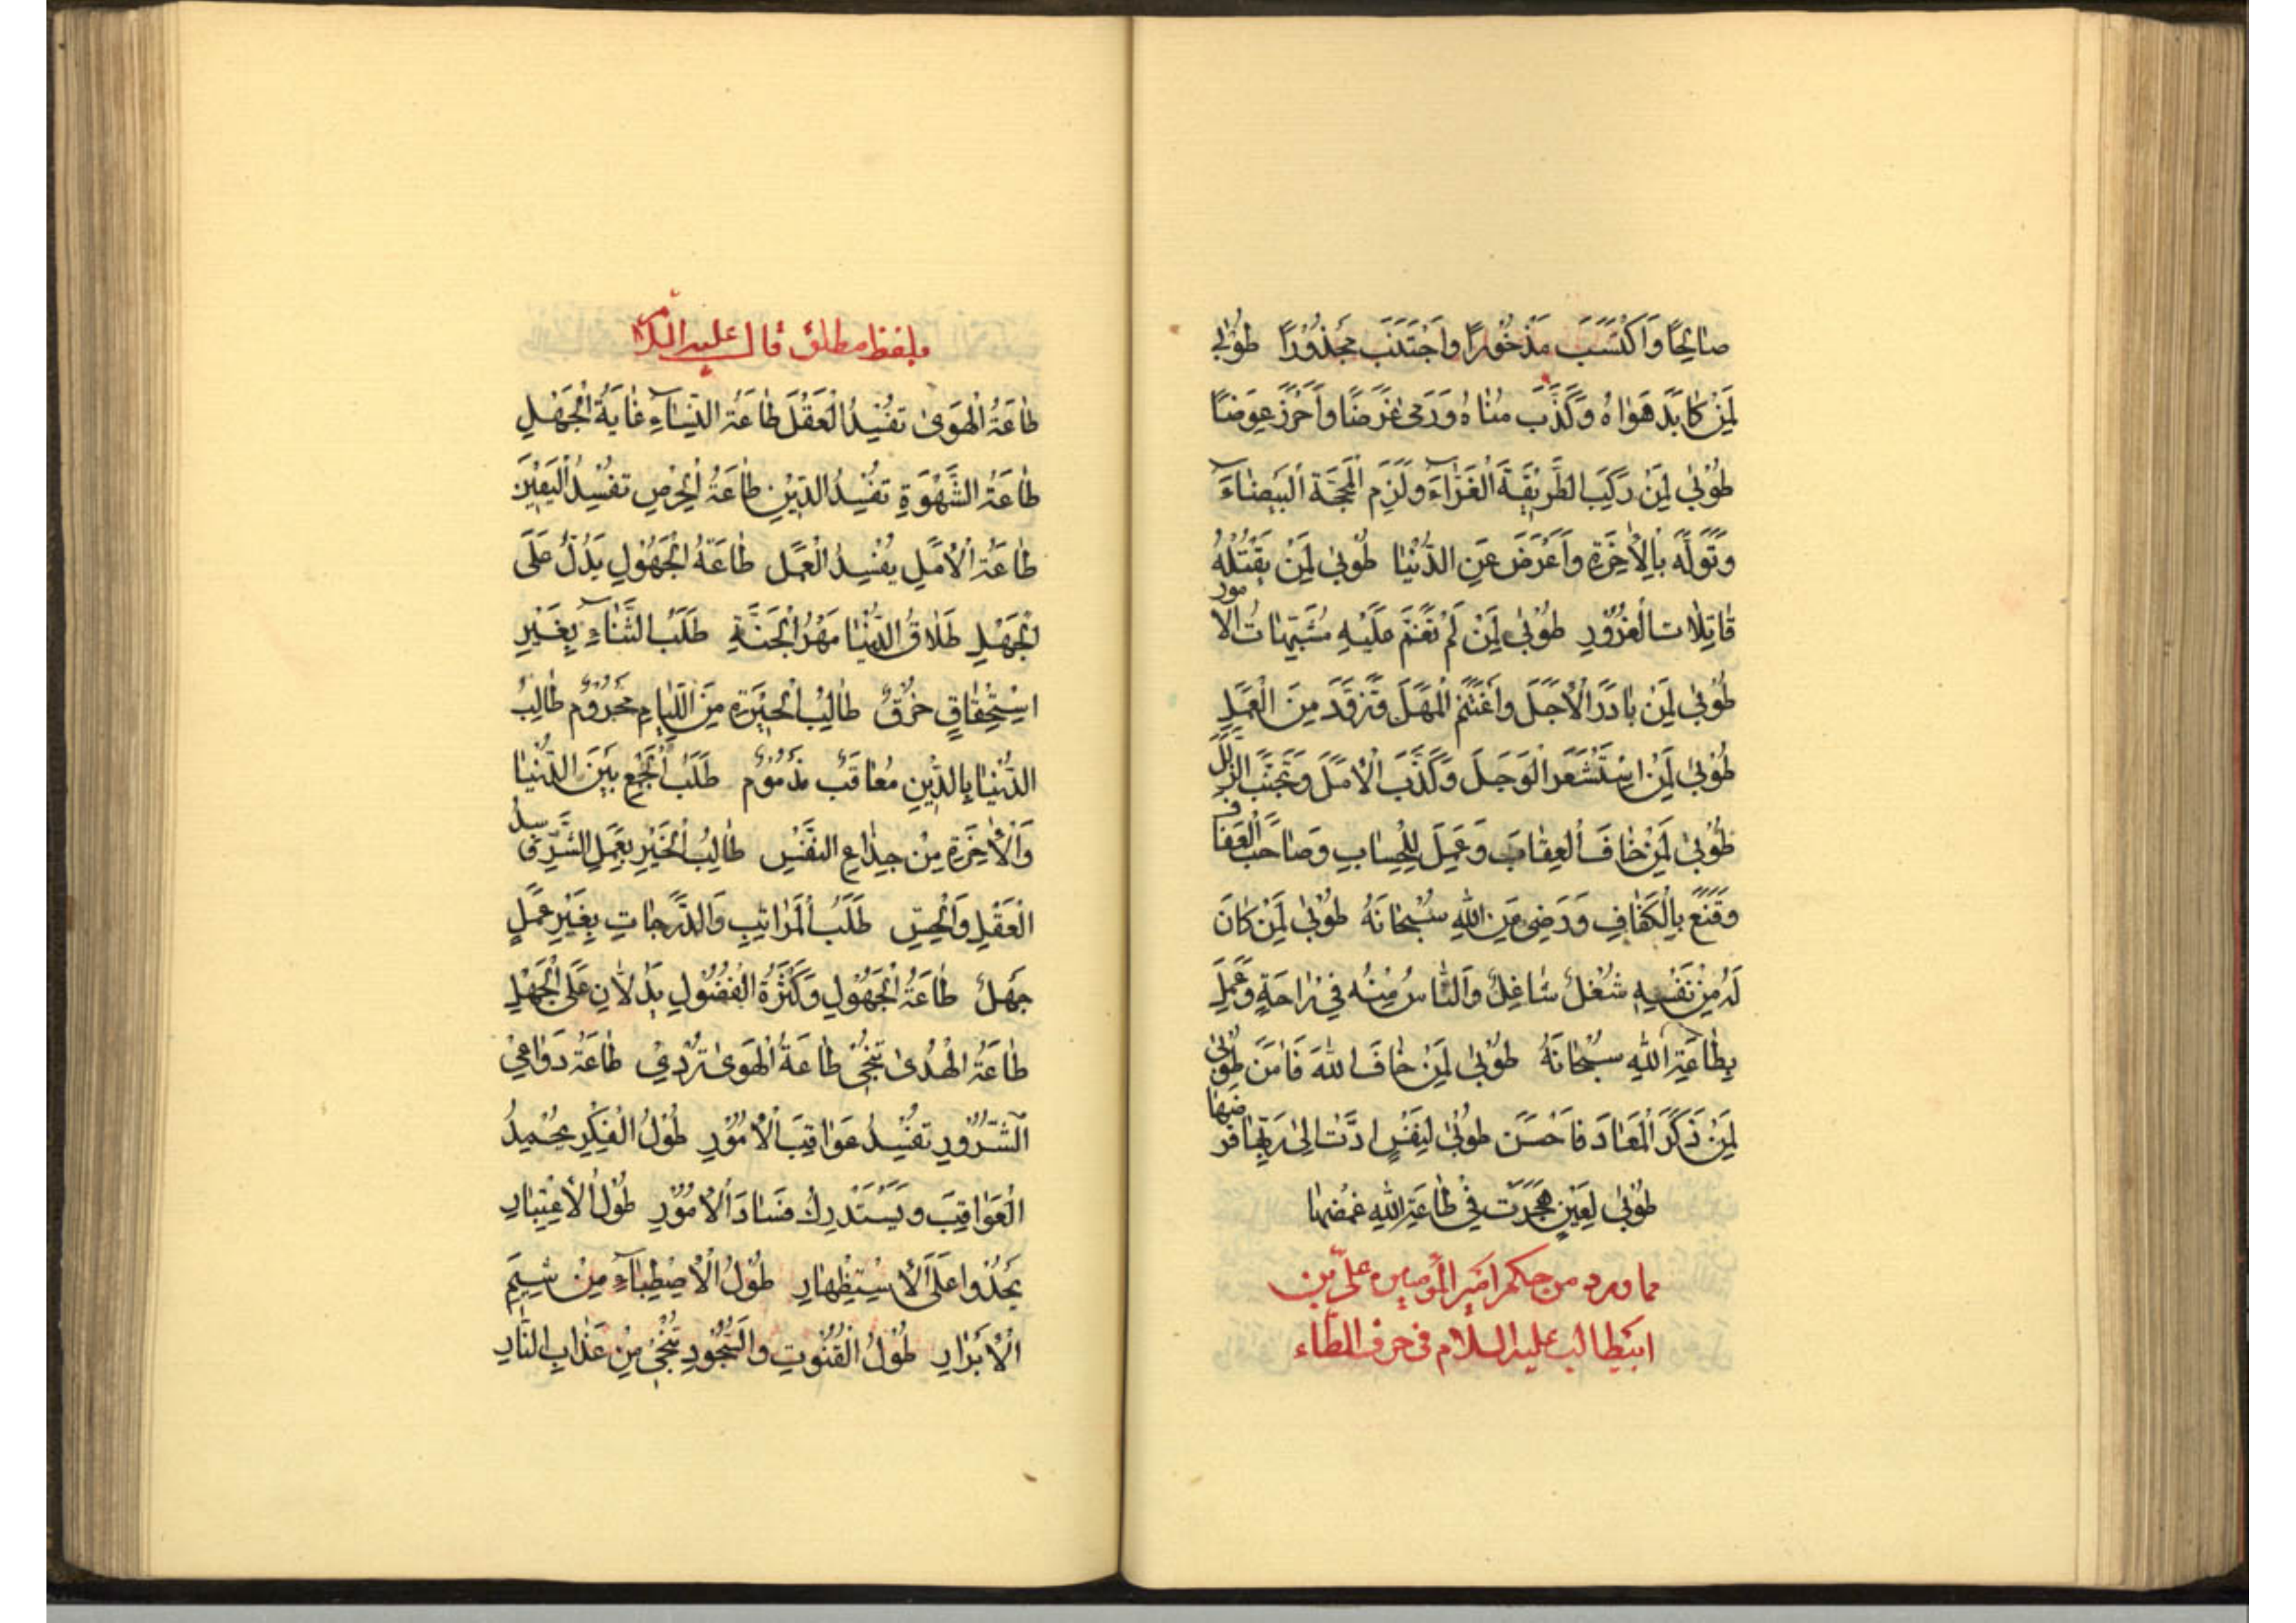 صَالِحًا وَاَكْتَسَبَ مَذْخُورًا وَاجْتَنَبَ مَحْذُوْرًا طُوْبٰي
لِمَنْ كَابَدَ هَوٰاهُ وَكَذَّبَ مُنٰاهُ وَرَمىٰ غَرَضًا وَاَحْرَزَ عِوَضًا
طُوْبٰي لِمَنْ رَكِبَ الطَّرِيْقَةَ الْغَرّٰاءَ وَلَزِمَ الْمَحَجَّةَ الْبَيْضٰاءَ
وَتَوَلَّهَ بِالْاٰخِرَةِ وَاَعْرَضَ عَنِ الدُّنْيٰا طُوْبٰي لِمَنْ يَقْتُلْهُ
قٰاتِلٰاتُ الْغُرُوْرِ طُوْبٰي لِمَنْ لَمْ تَغُمَّ عَلَيْهِ مُشْتَبِهٰاتُ الْاُمُورِ
طُوْبٰي لِمَنْ بٰادَرَ الْاَجَلَ وَاغْتَنَمَ الْمَهَلَ وَتَزَوَّدَ مِنَ الْعَمَلِ
طُوْبٰي لِمَنِ اسْتَشْعَرَ الْوَجَلَ وَكَذَّبَ الْاَمَلَ وَتَجَنَّبَ الزَّلَلَ
طُوْبٰي لِمَنْ خٰافَ الْعِقٰابَ وَعَمِلَ لِلْحِسٰابِ وَصٰاحَبَ الْعَفٰافَ
وَقَنَعَ بِالْكَفٰافِ وَرَضِيَ عَنِ اللهِ سُبْحٰانَهُ طُوْبٰي لِمَنْ كٰانَ
لَهُ مِنْ نَفْسِهِ شُغْلٌ شٰاغِلٌ وَالنّٰاسُ مِنْهُ فِي رٰاحَةٍ وَعَمِلَ
بِطٰاعَةِ اللهِ سُبْحٰانَهُ طُوْبٰي لِمَنْ خٰافَ اللهَ فَاٰمَنَ طُوْبٰي
لِمَنْ ذَكَرَ الْمَعٰادَ فَاَحْسَنَ طُوْبٰي لِنَفْسٍ اَدَّتْ اِلىٰ رَبِّهٰا فَرْضَهٰا
طُوْبٰي لِعَيْنٍ هَجَرَتْ فِي طٰاعَةِ اللهِ غُمْضَهٰا
مما ورد من حكم امير المؤمنين علي بن
ابيطالب عليه السلام في حرف الطاء
بلفظ مطلق قال عليه السلام
طٰاعَةُ الْهَوىٰ تُفْسِدُ الْعَقْلَ طٰاعَةُ النِّسٰاءِ غٰايَةُ الْجَهْلِ
طٰاعَةُ الشَّهْوَةِ تُفْسِدُ الدِّيْنَ طٰاعَةُ الْحِرْصِ تُفْسِدُ الْيَقِيْنَ
طٰاعَةُ الْاَمَلِ يُفْسِدُ الْعَمَلَ طٰاعَةُ الْجَهُوْلِ يَدُلُّ عَلَى
الْجَهْلِ طَلٰاقُ الدُّنْيٰا مَهْرُ الْجَنَّةِ طَلَبُ الثَّنٰاءِ بِغَيْرِ
اسْتِحْقٰاقٍ خُرْقٌ طٰالِبُ الْخَيْرِ مِنَ اللِّئٰامِ مَحْرُوْمٌ طٰالِبُ
الدُّنْيٰا بِالدِّيْنِ مُعٰاقَبٌ مَذْمُوْمٌ طَلَبُ الْجَمْعِ بَيْنَ الدُّنْيٰا
وَالْاٰخِرَةِ مِنْ خِدٰاعِ النَّفْسِ طٰالِبُ الْخَيْرِ بِعَمَلِ الشَّرِّ فٰاسِدُ
الْعَقْلِ وَالْحِسِّ طَلَبُ الْمَرٰاتِبِ وَالدَّرَجٰاتِ بِغَيْرِ عَمَلٍ
جَهْلٌ طٰاعَةُ الْجَهُوْلِ وَكَثْرَةُ الْفُضُوْلِ يَدُلّٰانِ عَلَى الْجَهْلِ
طٰاعَةُ الْهُدىٰ تُنْجِيْ طٰاعَةُ الْهَوىٰ تُرْدِيْ طٰاعَةُ دَوٰاعِيْ
الشُّرُوْرِ تُفْسِدُ عَوٰاقِبَ الْاُمُوْرِ طُوْلُ الْفِكْرِ يُحْمِدُ
الْعَوٰاقِبَ وَيَسْتَدْرِكُ فَسٰادَ الْاُمُوْرِ طُوْلُ الْاِعْتِبٰارِ
يَحْذُوا عَلَى الْاِسْتِظْهٰارِ طُوْلُ الْاِصْطِبٰاءِ مِنْ شِيَمِ
الْاَبْرٰارِ طُوْلُ الْقُنُوْتِ وَالسُّجُوْدِ تُنْجِيْ مِنْ عَذٰابِ النّٰارِ